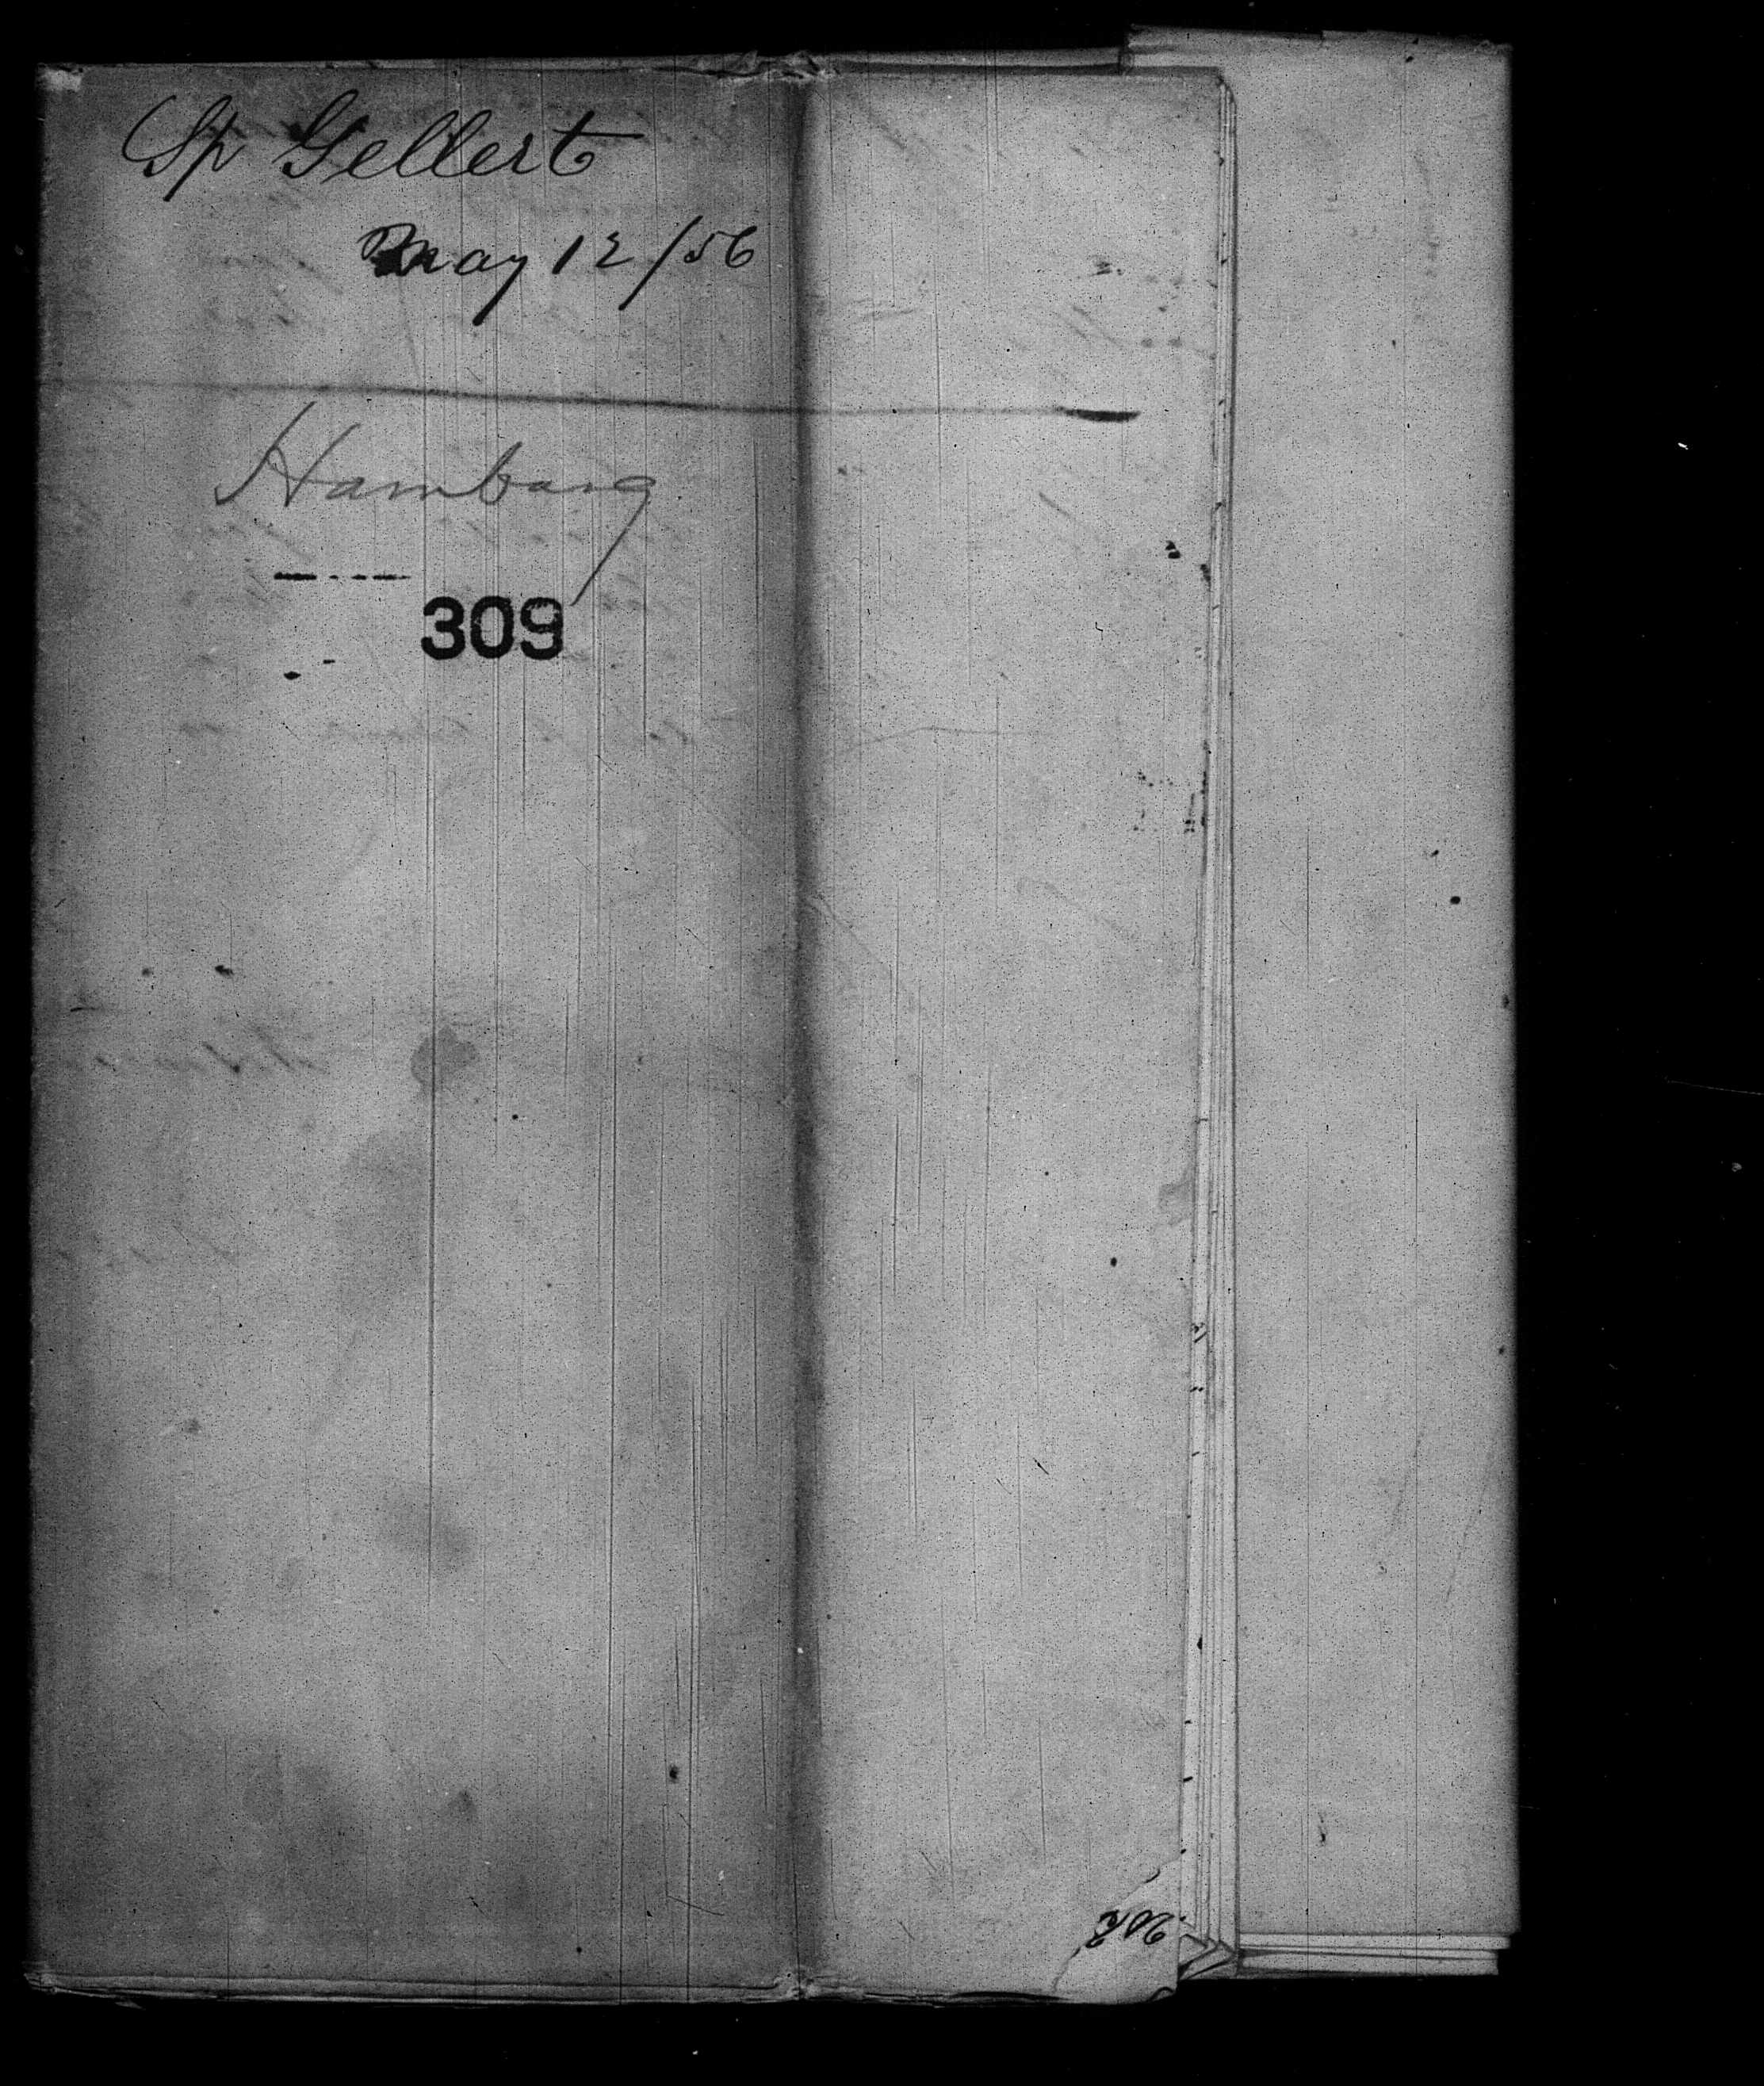 Sp Gellert
May 12/56
Hamburg
309